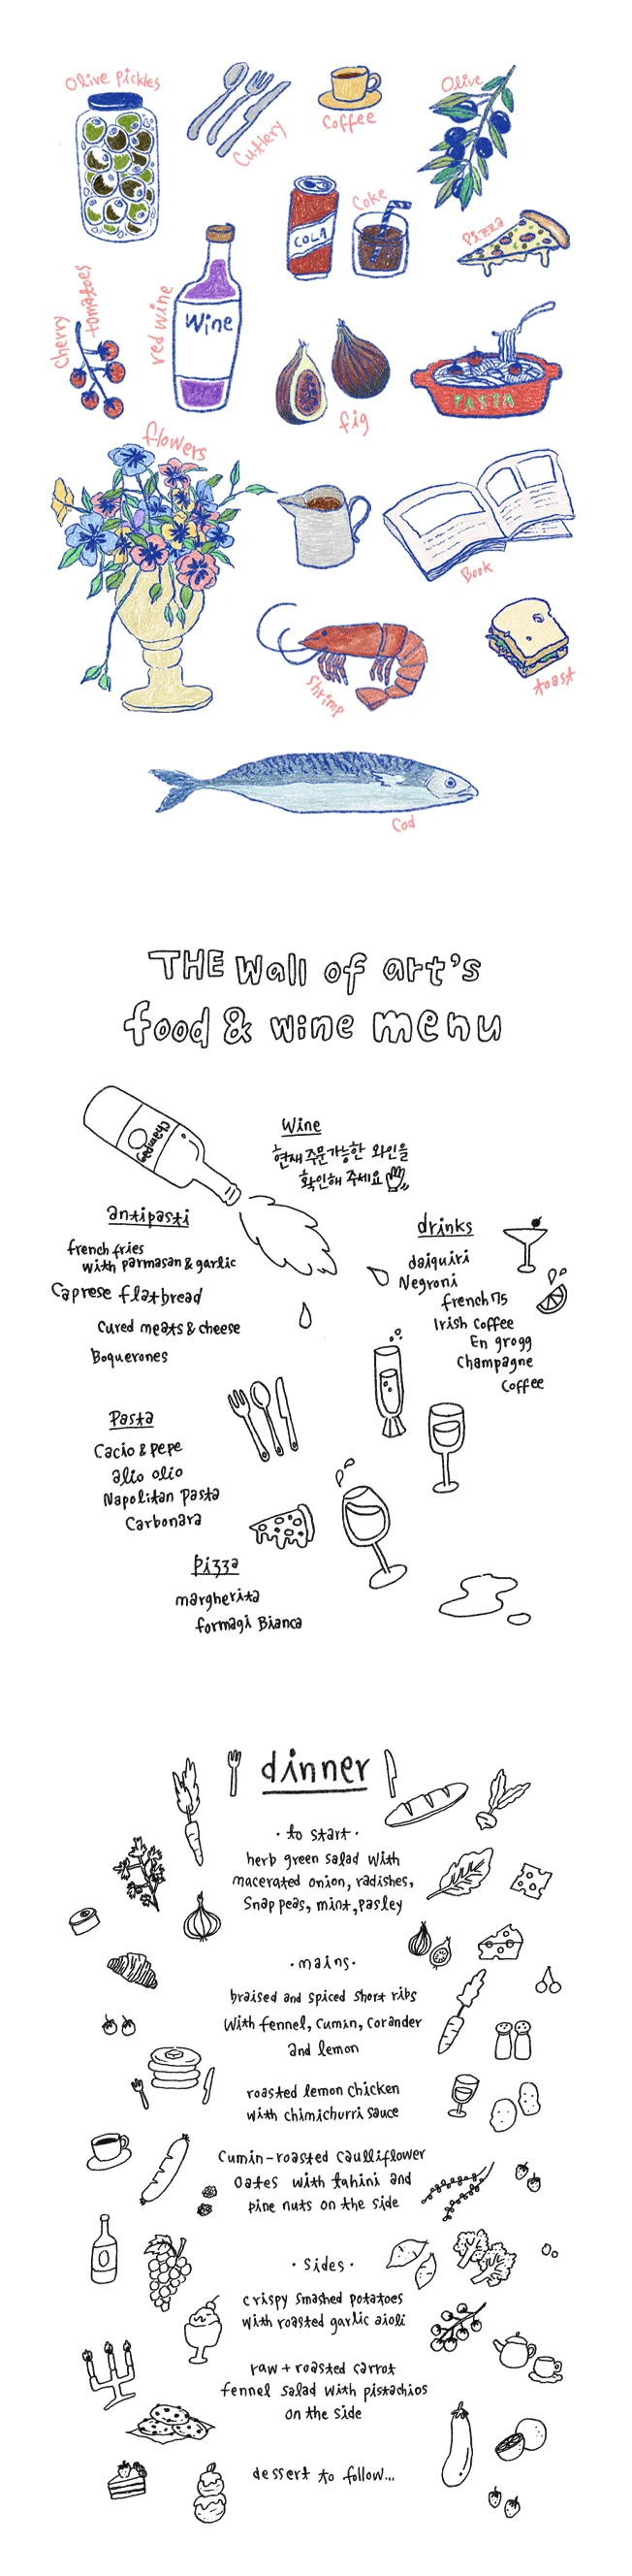 Olive Pickles
Cutlery
Coffee
Olive
Coke
COLA
Pizza
cherry
tomatoes
red wine
Wine
fig
PASTA
flowers
Book
Shrimp
toast
Cod
THE Wall of art's
food & wine menu
Champag
Wine
현재 주문가능한 와인을
확인해 주세요
antipasti
french fries
with parmasan & garlic
Caprese flatbread
Cured meats & cheese
Boquerones
drinks
daiquiri
Negroni
french 75
Irish coffee
En grogg
Champagne
Coffee
Pasta
Cacio & pepe
alio olio
Napolitan Pasta
Carbonara
Pizza
margherita
formagi Bianca
dinner
· to start ·
herb green salad with
macerated onion, radishes,
Snap peas, mint, pasley
· mains ·
braised and spiced short ribs
With fennel, Cumin, Corander
and lemon
roasted lemon chicken
with chimichurri sauce
Cumin-roasted Caulliflower
Oates with tahini and
pine nuts on the side
· Sides ·
crispy smashed potatoes
with roasted garlic aioli
raw + roasted carrot
fennel salad with pistachios
on the side
dessert to follow...